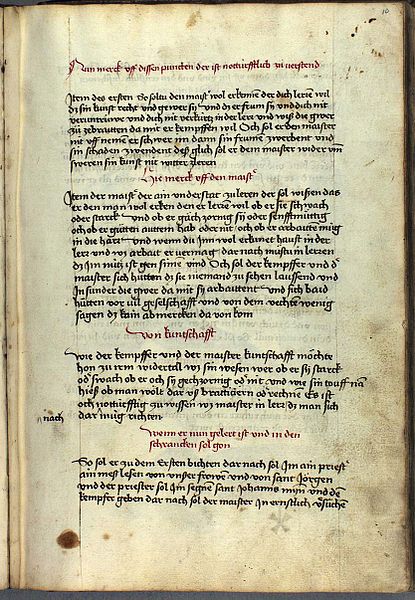 10
Nun merck uff dissen puncten der ist notturfftlich zu verstend
Item des ersten So soltu den maist wol erkennen der dich leren wil
dz sin kunst recht und gewer sy und dz er frum sy und dich nit
veruntruwe und dich nit verkürtz in der lere und wiß die gwer
zu zebraitten da mit er kempffen wil Och sol er den maister
nit uff nemen er schwer im dann sin frumen zwerbent und
sin schaden zwendent deß glich sol er dem maister wider um
sweren sin kunst nit witter zleren
Hie merck uff den maist
Item der maist der ain understat zu leren der sol wissen das
er den man wol erken den er leren wil ob er sie schwach
oder starck und ob er gäch zornig sy oder senfftmüttig
och ob er gütten auttem hab oder nit och ob er arbaitten müg
in die harr und wenn du inn wol erkinet haust in der
lere und wz arbait er vermag dar nach müstu in leren
dz im nütz ist gen sinem vind Och sol der kempffer und d
maister sich hütten dz sie niemand zu sehen laussend und
In sunder die gwer da mit sy arbaittent und sich baid
hütten vor vil geselschafft und von dem vechten wenig
sagen dz kain abmercken da von kom
Von kuntschafft
Wie der kempffer und der maister kuntschafft möchte
hon zu irem widertail wz sin wesen wer ob er sy starck
od swach ob er och sy gechzornig od nit und wie sin touff nam
hieß ob man wölt dar us brattieren od rechnen Es ist
och notturfftig zu wissen wz maister in lere dz man sich
nach dar nuig richten
Wenn er nun gelert ist und in den
schrancken sol gon
So sol er zu dem ersten bichten dar nach sol im ain priest
ain mess lesen von unser frowen und von sant Jörgen
und der priester sol im segnen sant johanns myn und dem
kempfer geben dar nach sol der maister in ernstlich versüche